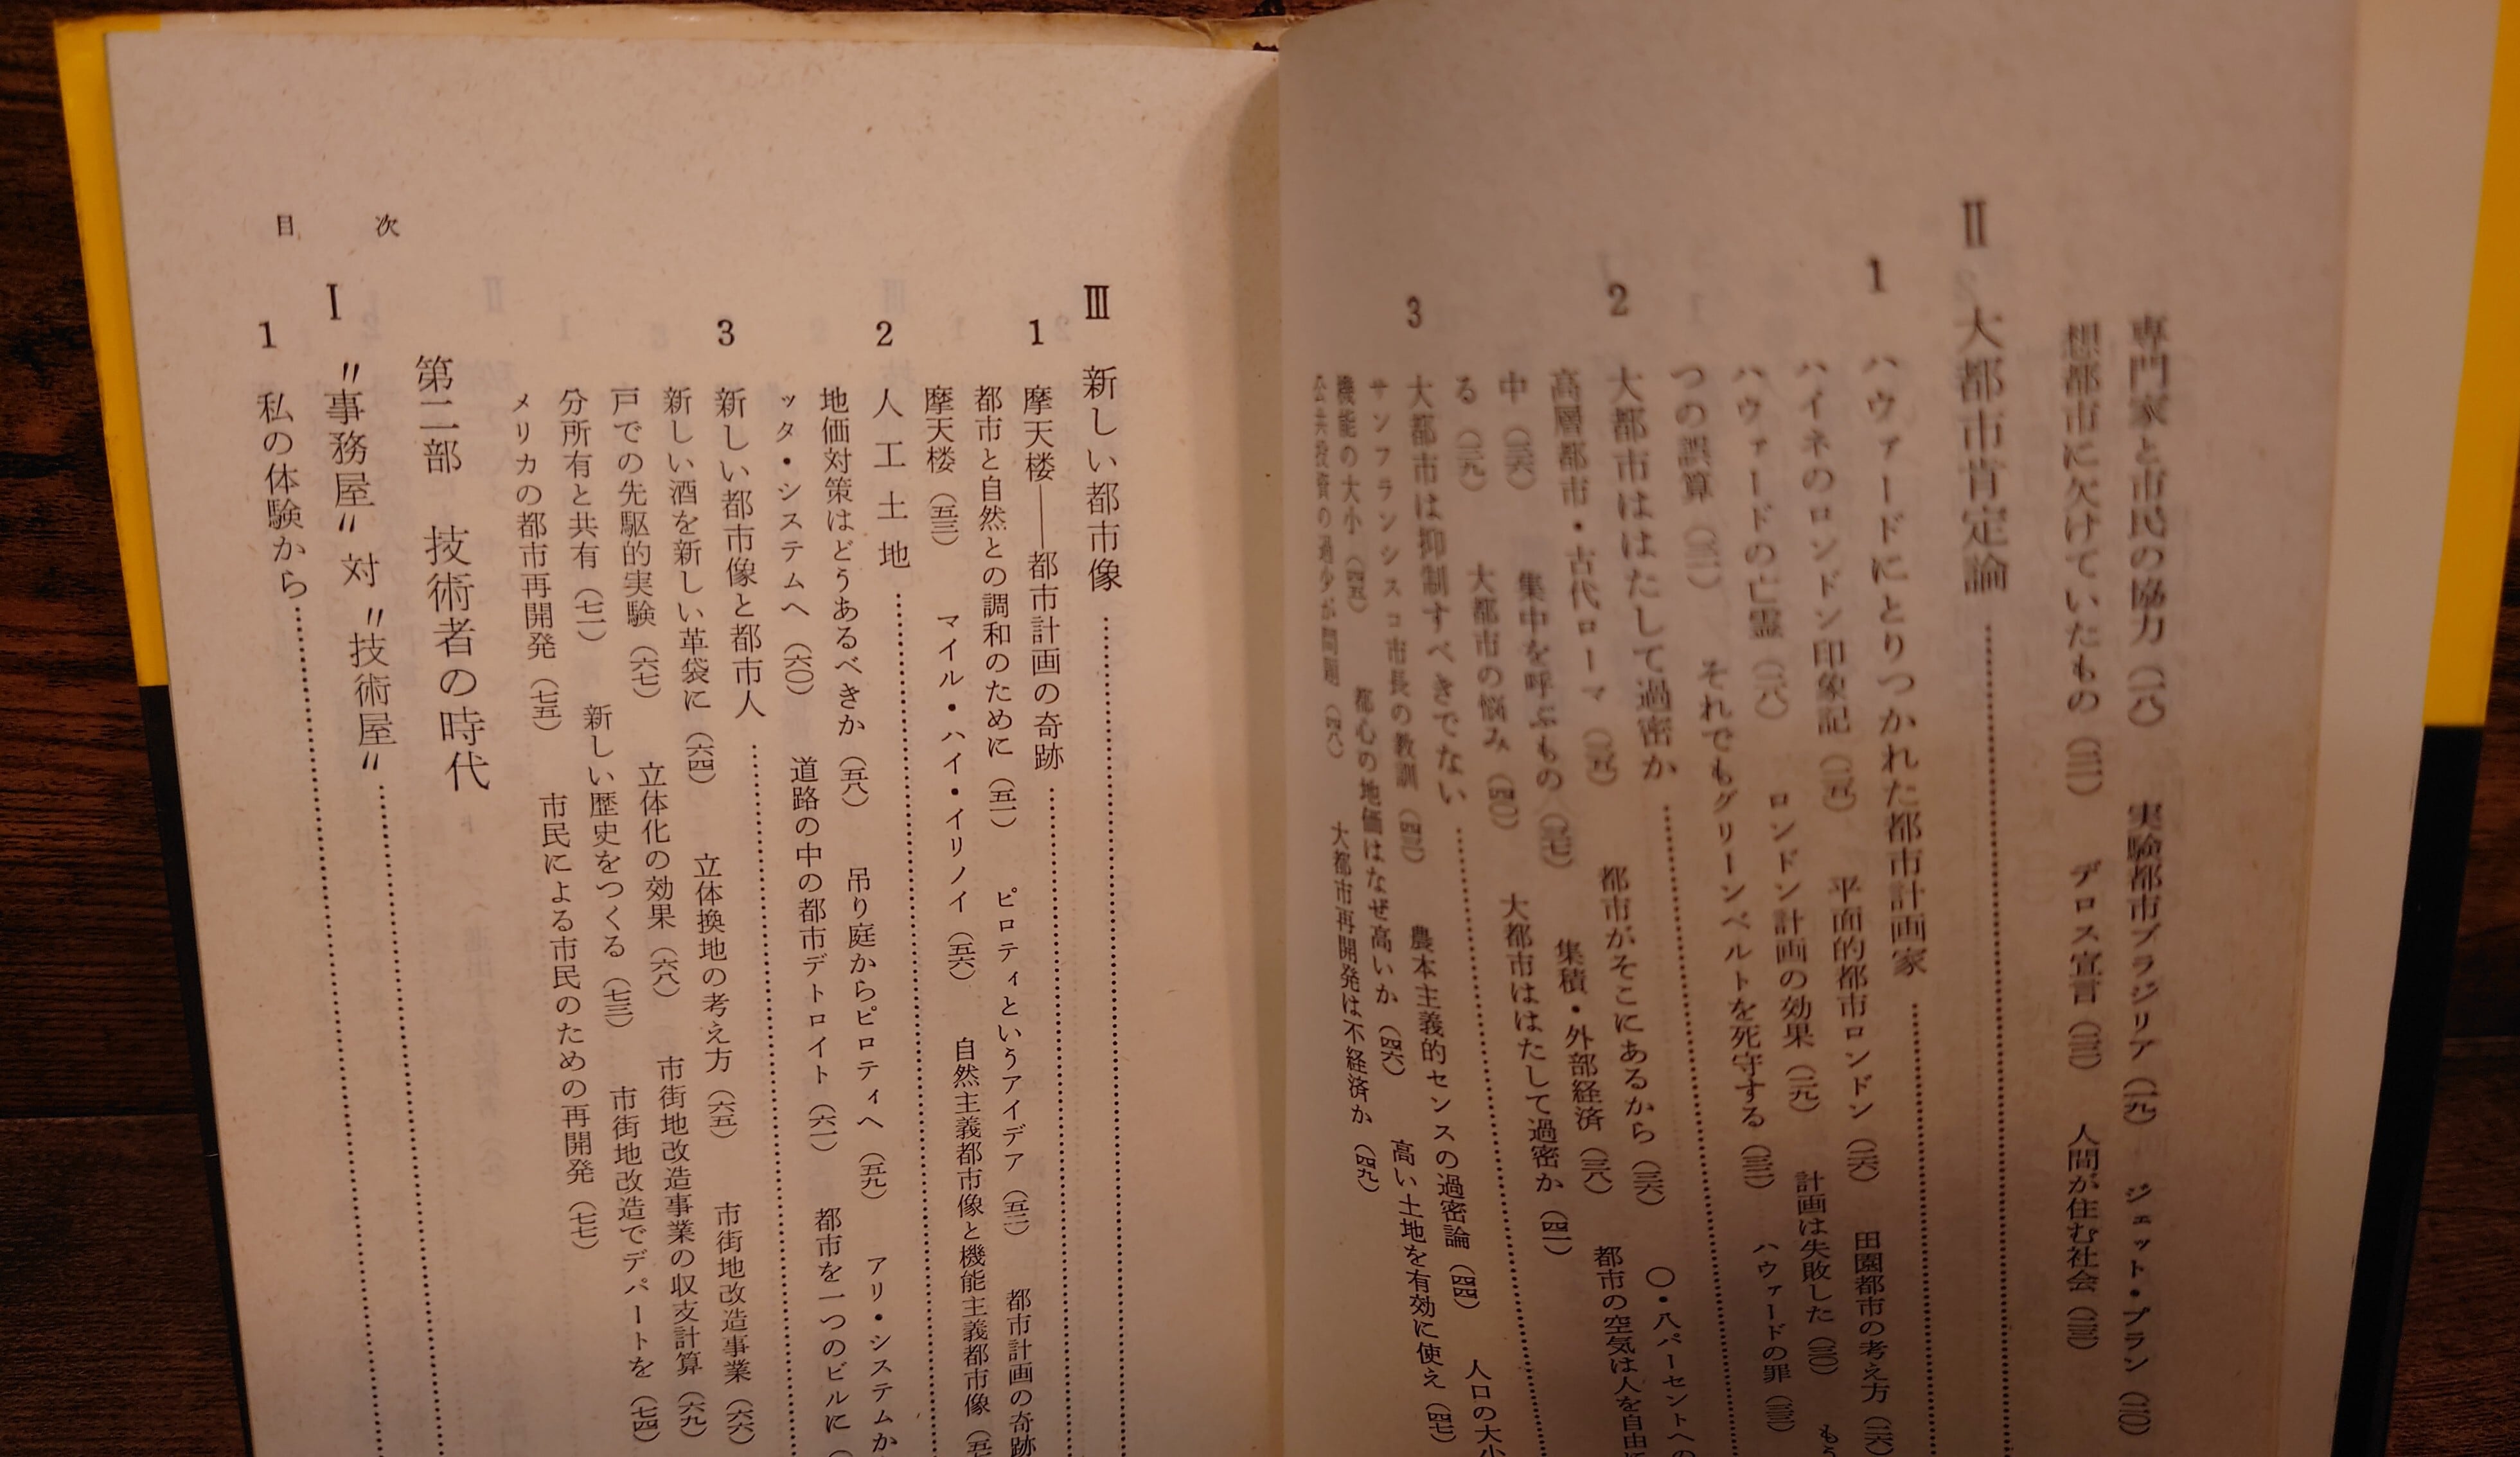 専門家と市民の協力（一八）　実験都市ブラジリア（一九）　ジェット・プラン（二〇）
想都市に欠けていたもの（二一）　デロス宣言（二二）　人間が住む社会（二三）
II　大都市肯定論
1　ハワァードにとりつかれた都市計画家
ハイネのロンドン印象記（二五）　平面的都市ロンドン（二六）　田園都市の考え方（二六）
ハワァードの亡霊（二八）　ロンドン計画の効果（二九）　計画は失敗した（三〇）　もう
つの誤算（三一）　それでもグリーンベルトを死守する（三二）　ハワァードの罪（三三）
2　大都市ははたして過密か
高層都市・古代ローマ（三五）　都市がそこにあるから（三六）　〇・八パーセントへの
中（三六）　集中を呼ぶもの（三七）　集積・外部経済（三八）　都市の空気は人を自由に
る（三九）　大都市の悩み（四〇）　大都市ははたして過密か（四一）
3　大都市は抑制すべきでない
サンフランシスコ市長の教訓（四三）　農本主義的センスの過密論（四四）　人口の大小
機能の大小（四五）　都心の地価はなぜ高いか（四六）　高い土地を有効に使え（四七）
公共投資の過少が問題（四八）　大都市再開発は不経済か（四九）
III　新しい都市像
1　摩天楼――都市計画の奇跡
都市と自然との調和のために（五一）　ピロティというアイデア（五二）　都市計画の奇跡
摩天楼（五三）　マイル・ハイ・イリノイ（五六）　自然主義都市像と機能主義都市像
2　人工土地
地価対策はどうあるべきか（五八）　吊り庭からピロティへ（五九）　アリ・システムか
ッタ・システムへ（六〇）　道路の中の都市デトロイト（六一）　都市を一つのビルに
3　新しい都市像と都市人
新しい酒を新しい革袋に（六四）　立体換地の考え方（六五）　市街地改造事業（六六）
戸での先駆的実験（六七）　立体化の効果（六八）　市街地改造事業の収支計算（六九）
分所有と共有（七一）　新しい歴史をつくる（七三）　市街地改造でデパートを（七四）
メリカの都市再開発（七五）　市民による市民のための再開発（七七）
第二部　技術者の時代
I　〃事務屋〃対〃技術屋〃
1　私の体験から
目次